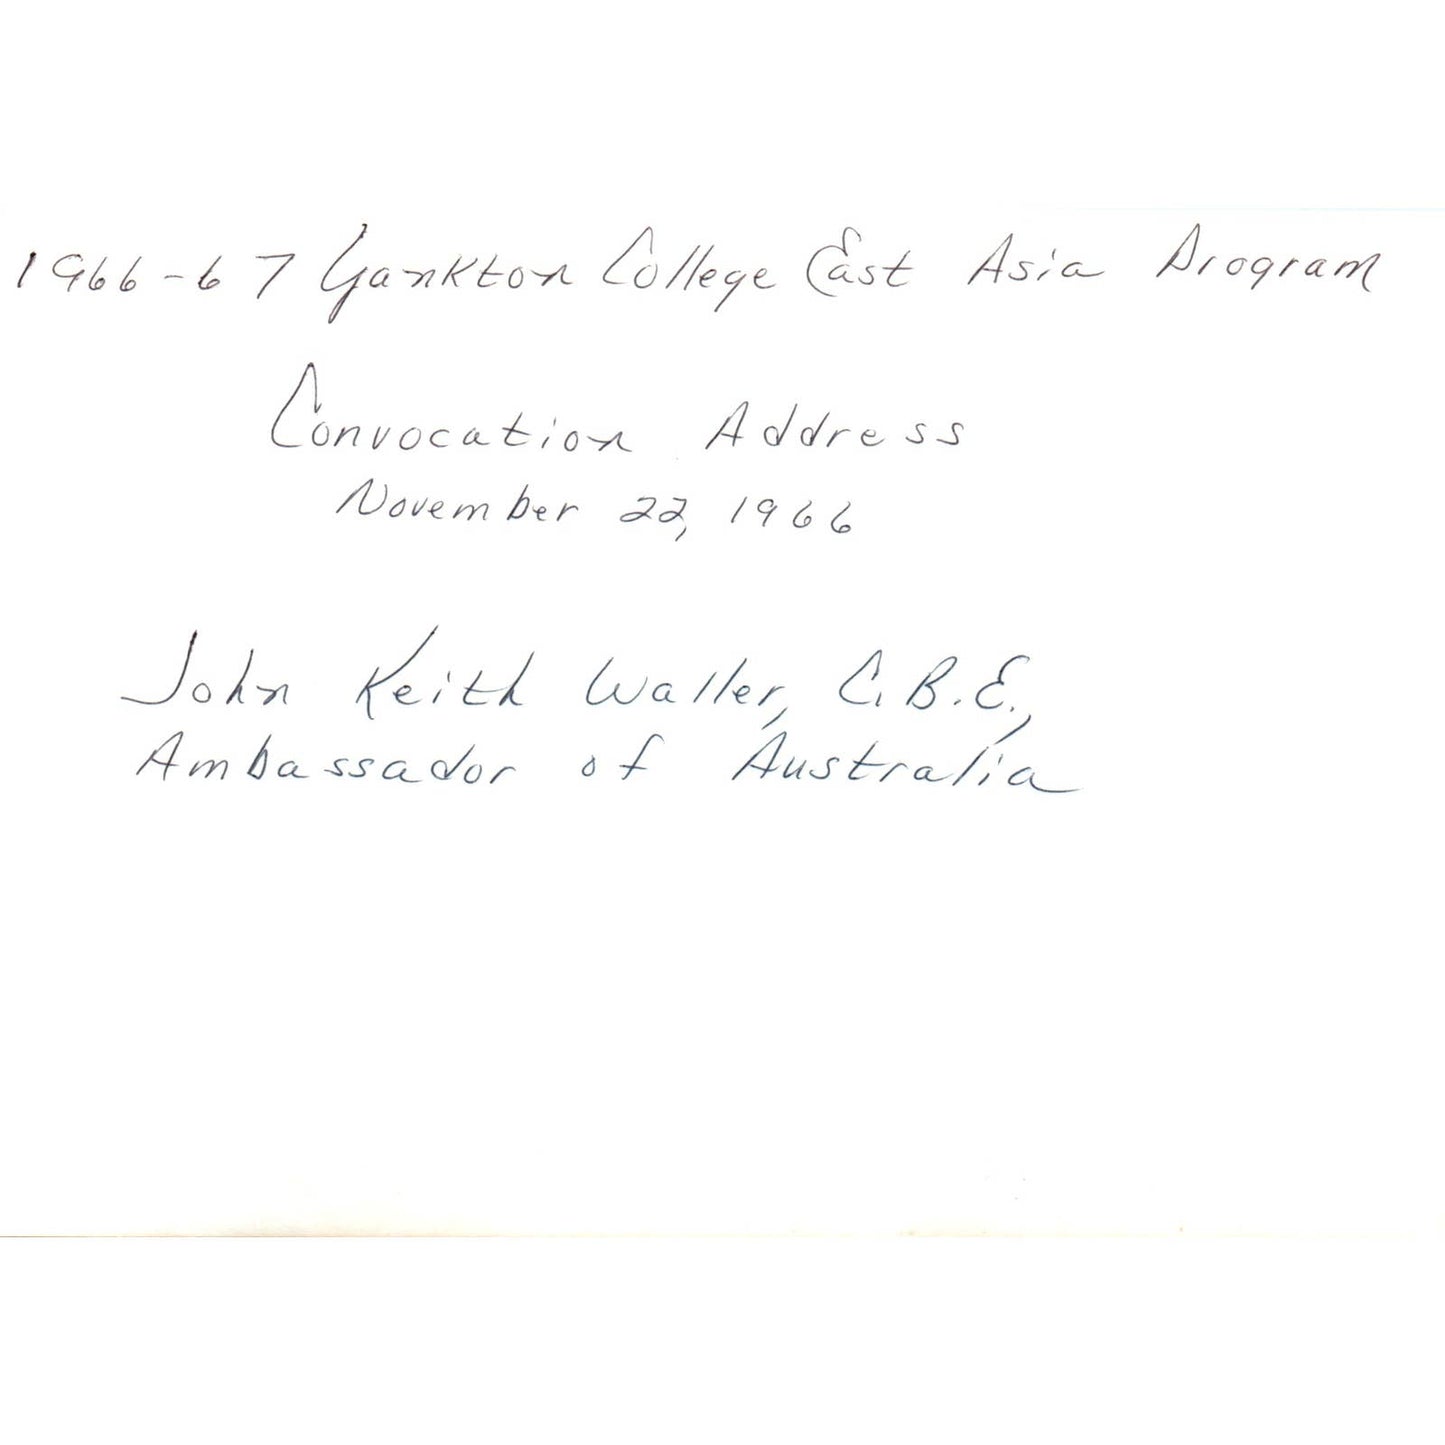 1966-67 Yankton College East Asia Program
Convocation Address
November 22, 1966
John Keith Waller, C.B.E.,
Ambassador of Australia